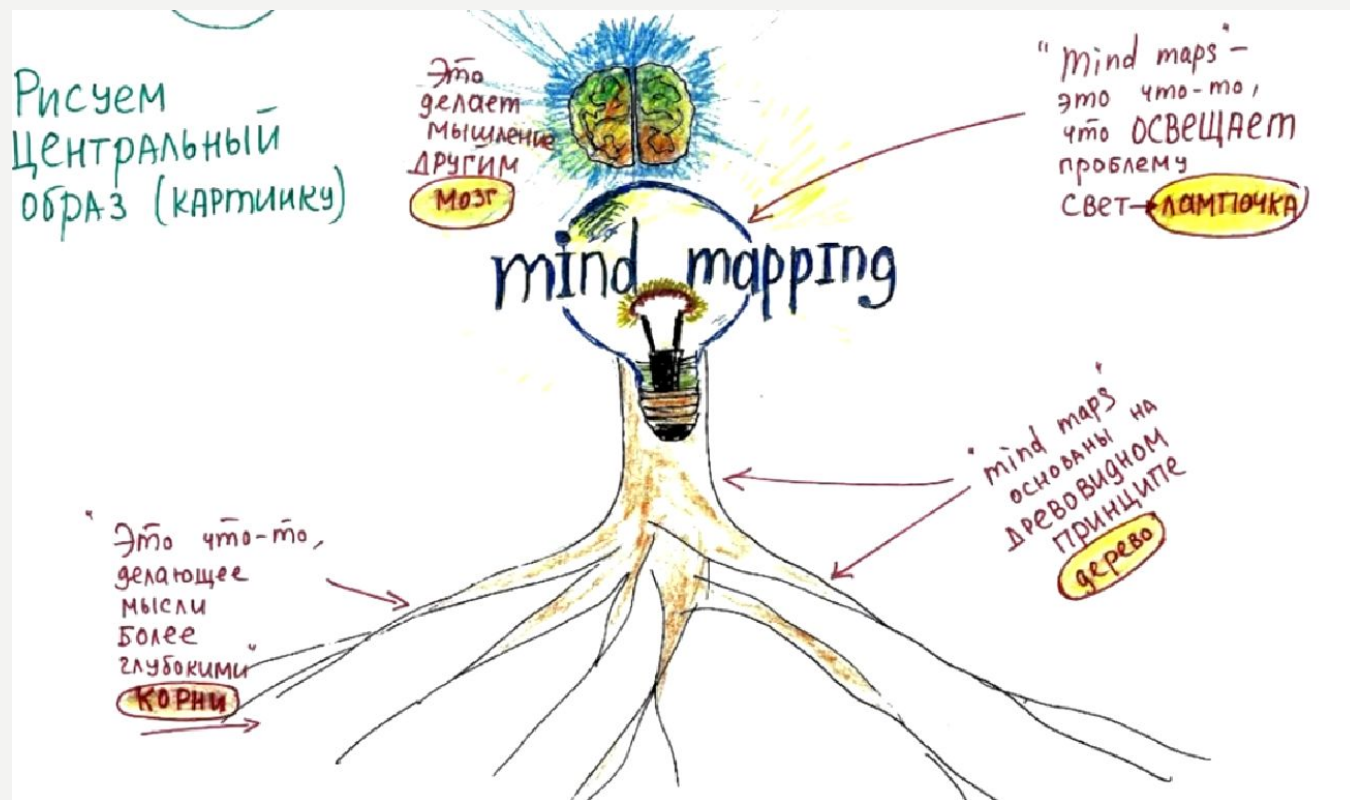 Рисуем
центральный
образ (картинку)
Это
делает
мышление
другим
мозг
"mind maps" -
это что-то,
что ОСВЕЩАЕТ
проблему
свет → ЛАМПОЧКА
mind mapping
"mind maps"
основаны на
древовидном
принципе
дерево
"Это что-то,
делающее
мысли
более
глубокими"
КОРНИ